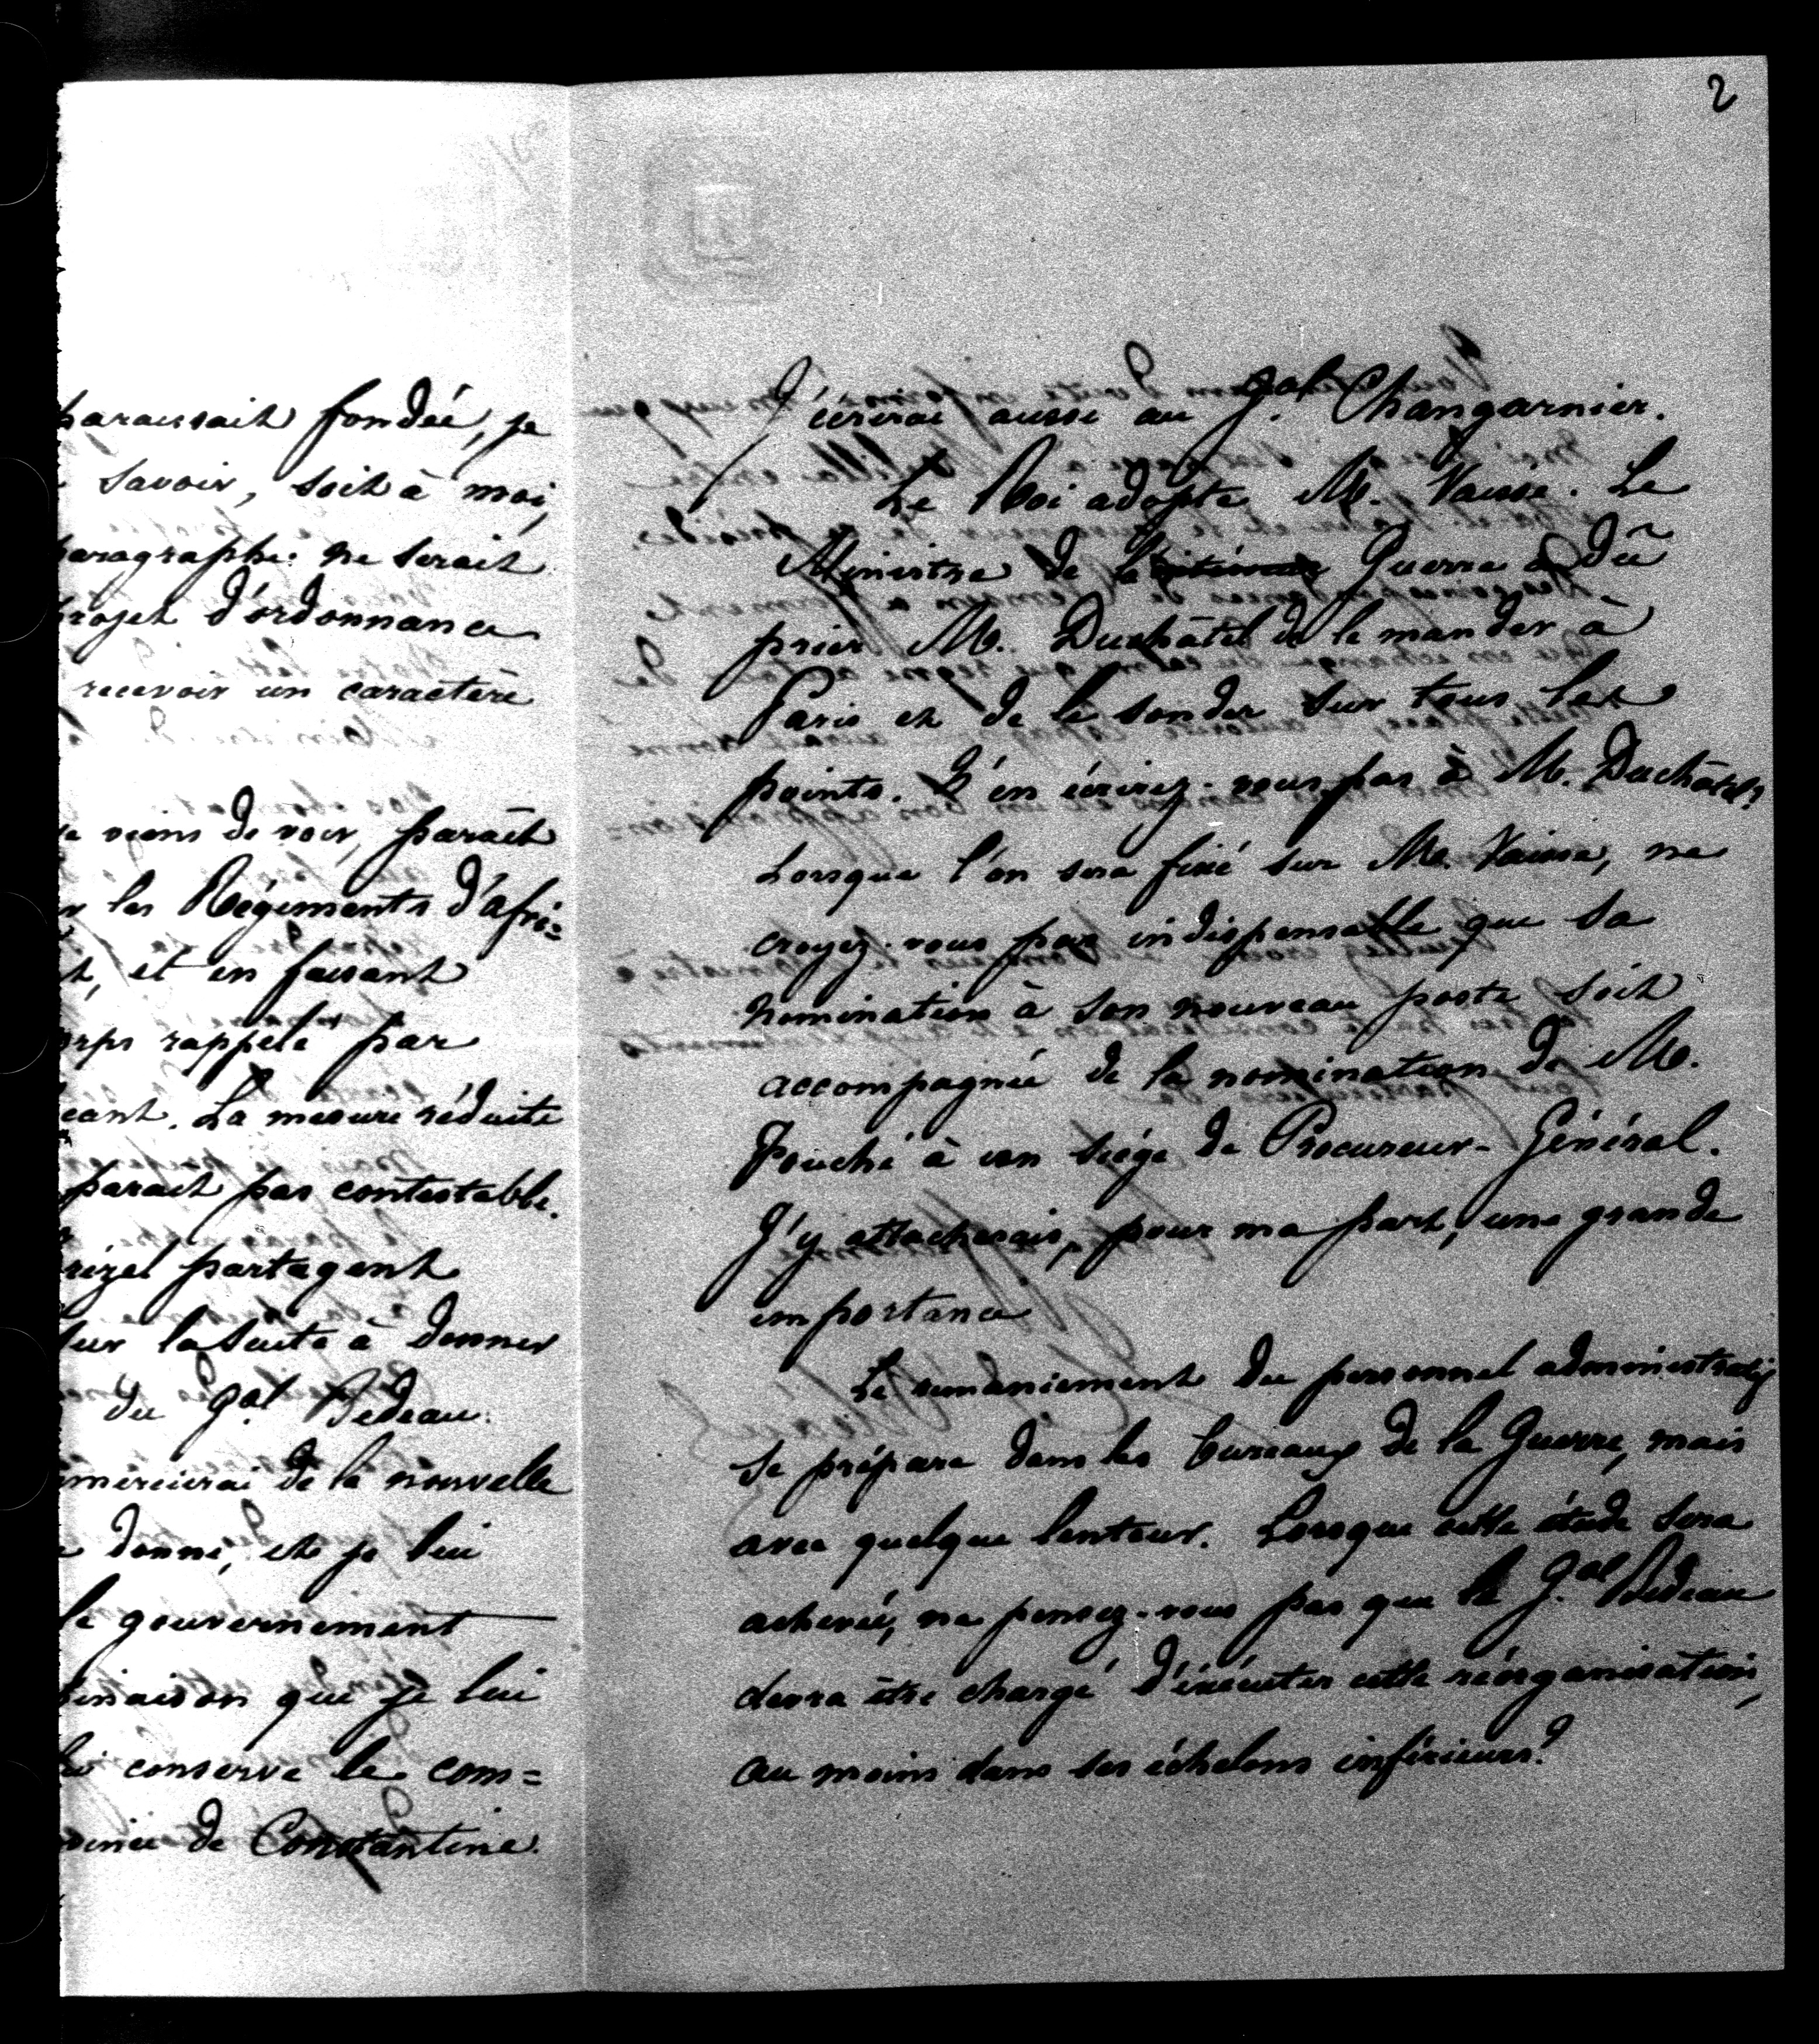 paraissait fondée, je
savoir, soit à moi,
paragraphe ne serait
projet d'ordonnance
recevoir un caractère
viens de voir, paraît
les Régiments d'afri=
et en faisant
rappelé par
La mesure réduite
parait pas contestable.
partagent
sur la suite à donner
du Gal Bedeau.
de la nouvelle
donné, et je lui
le gouvernement
que je lui
conserve le com=
de Constantine.
2
J'écrirai aussi au Gal Changarnier.
Le Roi adopte M. Vaisse. Le
Ministre de la Guerre a dû
prier M. Duchâtel de le mander à
Paris et de le sonder sur tous les
points. N'en écrirez-vous pas à M. Duchâtel?
Lorsque l'on sera fixé sur M. Vaisse, ne
croyez-vous pas indispensable que sa
nomination à son nouveau poste soit
accompagnée de la nomination de M.
Fouché à un siége de Procureur-Général.
J'y attacherais, pour ma part, une grande
importance
Le remaniement du personnel administratif
se prépare dans les bureaux de la Guerre, mais
avec quelque lenteur. Lorsque cette étude sera
achevée, ne pensez-vous pas que le Gal Bedeau
devra être chargé d'exécuter cette réorganisation,
au moins dans ses échelons inférieurs?